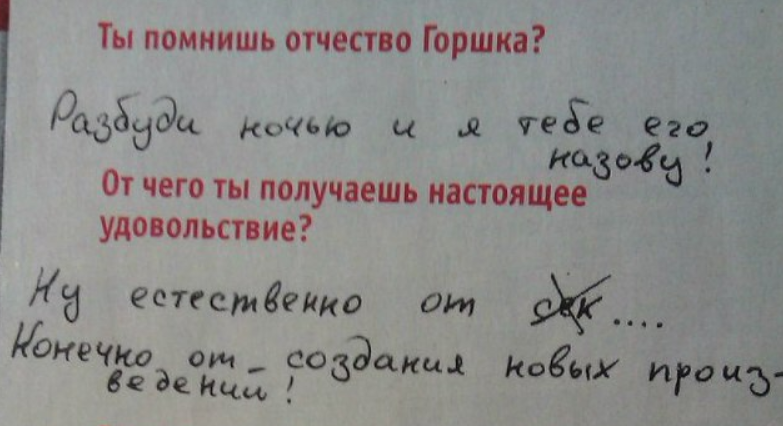 Ты помнишь отчество Горшка?
Разбуди ночью и я тебе его
назову!
От чего ты получаешь настоящее
удовольствие?
Ну естественно от сек....
Конечно от создания новых произ-
ведений!